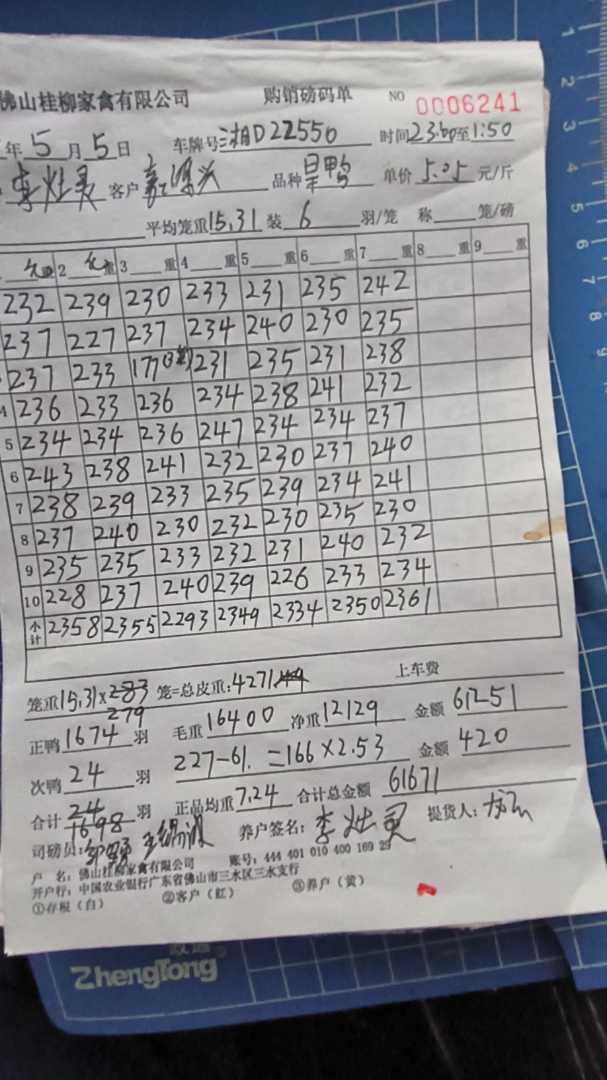 佛山桂柳家禽有限公司 购销磅码单 NO 0006241
年5月5日 车牌号 湘D22550 时间23:00至1:50
李灶灵 客户 品种 旱鸭 单价 5.05 元/斤
平均笼重15.31 装 6 羽/笼 称 笼/磅
重 2 重 3 重 4 重 5 重 6 重 7 重 8 重 9 重
232 239 230 233 231 235 242
237 227 237 234 240 230 235
237 233 177 231 235 231 238
4 236 233 236 234 238 241 232
5 234 234 236 247 234 234 237
6 243 238 241 232 230 237 240
7 238 239 233 235 239 234 241
8 237 240 230 232 230 235 230
9 235 235 233 232 231 240 232
10 228 237 240 239 226 233 234
小计 2358 2355 2293 2349 2334 2350 2361
笼重15.31×283 笼=总皮重:4271 上车费
279
正鸭 1674 羽 毛重 16400 净重 12129 金额 61251
次鸭 24 羽 227-61.=166×2.53 金额 420
合计 24 羽 正品均重 7.24 合计总金额 61671
1698
司磅员: 养户签名: 李灶灵 提货人:
户 名: 佛山桂柳家禽有限公司 账号: 444 401 010 400 169 29
开户行: 中国农业银行广东省佛山市三水区三水支行
①存根(白) ②客户(红) ③养户(黄)
ZhengTong